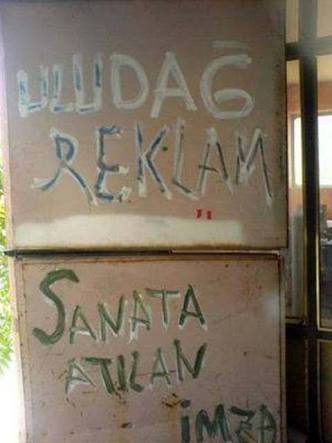 ULUDAĞ
REKLAM
SANATA
ATILAN
İMZA